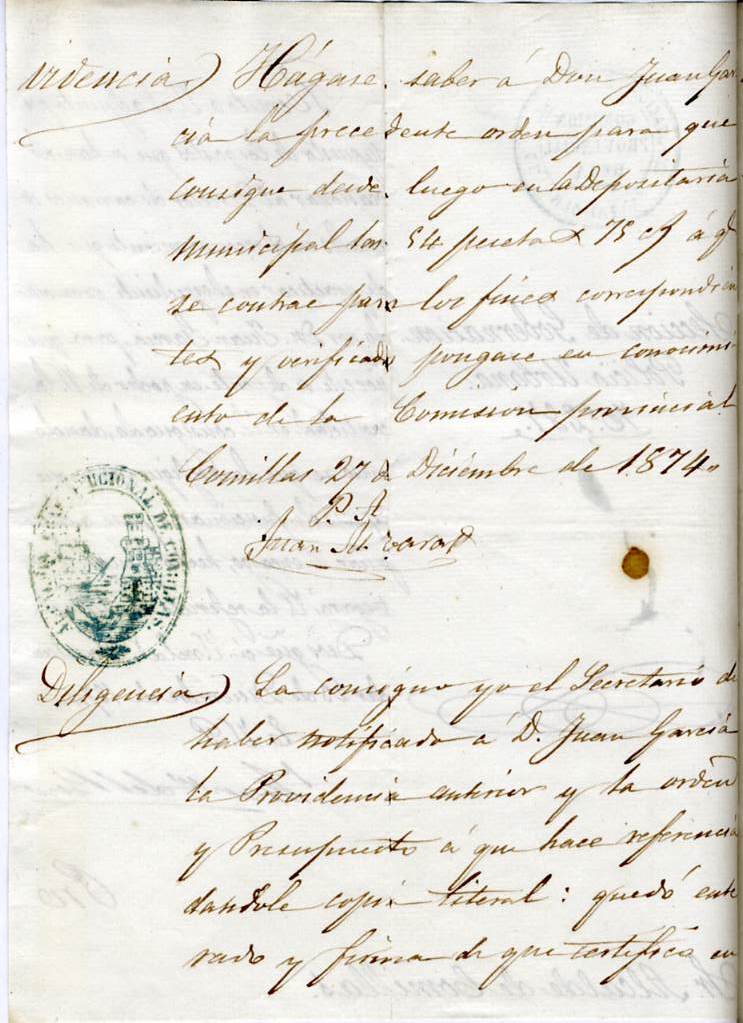 videncia) Hágase saber á Don Juan Gar
cia la precedente orden para que
consigne desde luego en la Depositaria
Municipal las 54 pesetas 75 cs á q.
se contrae para los fines correspondien
tes y verificado pongase en conocimi
ento de la Comision provincial
Comillas 27 de Diciembre de 1874
P. A.
Juan
CONSTITUCIONAL DE COMILLAS.
Diligencia) La consigno yo el Secretario de
haber notificado á D. Juan Garcia
la Providencia anterior y la orden
y Presupuesto á que hace referencia
dandole copia literal: quedó ente
rado y firma de que certifico en